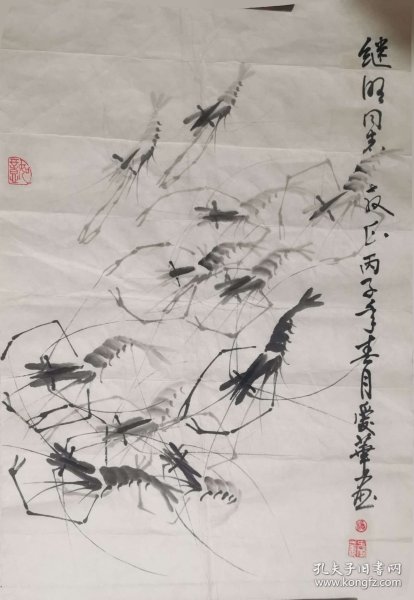 继明同志教正丙子年春月爱华画
如意
孔夫子旧书网
www.kongfz.com